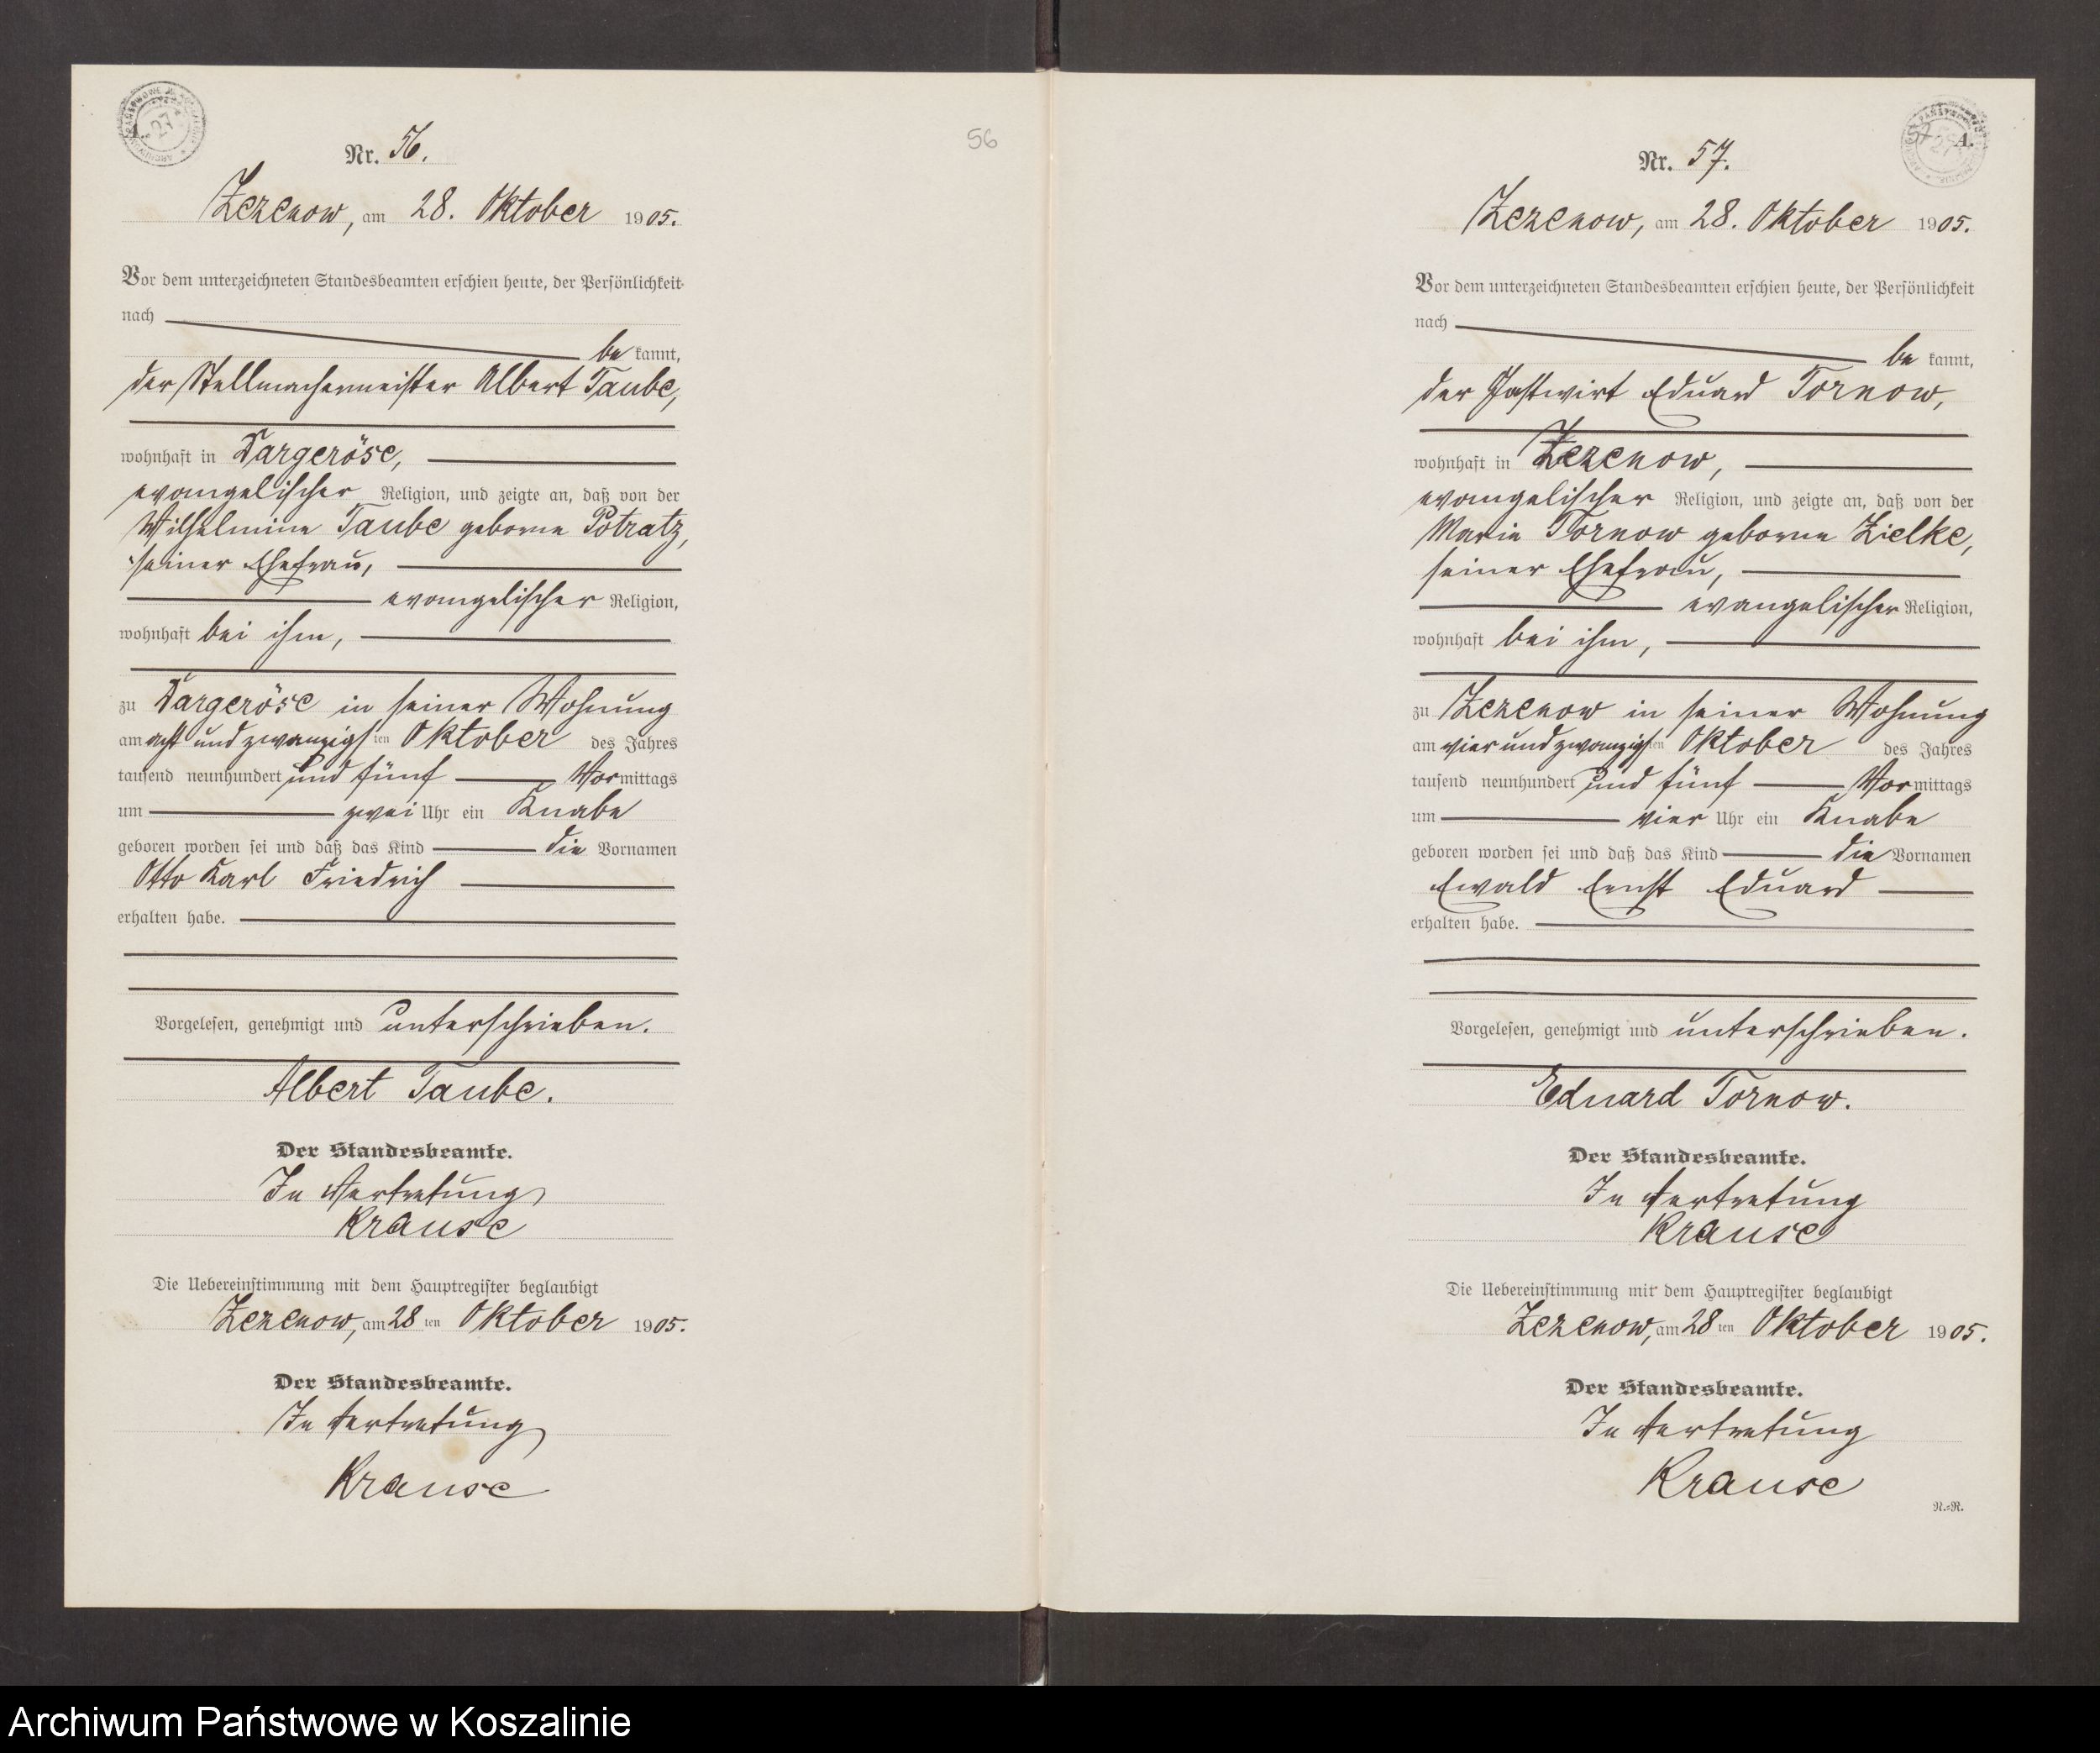 A.
Nr. 56.
Zezenow, am 28. Oktober 1905.
Vor dem unterzeichneten Standesbeamten erschien heute, der Persönlichkeit
nach
be kannt,
der Stellmachermeister Albert Taube,
wohnhaft in Dargeröse,
evangelischer Religion, und zeigte an, daß von der
Wilhelmine Taube geborne Potratz,
seiner Ehefrau,
evangelischer Religion,
wohnhaft bei ihm,
zu Dargeröse in seiner Wohnung
am acht und zwanzigsten Oktober des Jahres
tausend neunhundert und fünf Vormittags
um zwei Uhr ein Knabe
geboren worden sei und daß das Kind die Vornamen
Otto Karl Friedrich
erhalten habe.
Vorgelesen, genehmigt und unterschrieben.
Albert Taube.
Der Standesbeamte.
In Vertretung
Krause
Die Uebereinstimmung mit dem Hauptregister beglaubigt
Zezenow, am 28 ten Oktober 1905.
Der Standesbeamte.
In Vertretung
Krause
56
57
A.
Nr. 57.
Zezenow, am 28. Oktober 1905.
Vor dem unterzeichneten Standesbeamten erschien heute, der Persönlichkeit
nach
be kannt,
der Gastwirt Eduard Tornow,
wohnhaft in Zezenow,
evangelischer Religion, und zeigte an, daß von der
Marie Tornow geborne Zielke,
seiner Ehefrau,
evangelischer Religion,
wohnhaft bei ihm,
zu Zezenow in seiner Wohnung
am vier und zwanzigsten Oktober des Jahres
tausend neunhundert und fünf Vormittags
um vier Uhr ein Knabe
geboren worden sei und daß das Kind die Vornamen
Ewald Ernst Eduard
erhalten habe.
Vorgelesen, genehmigt und unterschrieben.
Eduard Tornow.
Der Standesbeamte.
In Vertretung
Krause
Die Uebereinstimmung mit dem Hauptregister beglaubigt
Zezenow, am 28 ten Oktober 1905.
Der Standesbeamte.
In Vertretung
Krause
N.=R.
Archiwum Państwowe w Koszalinie